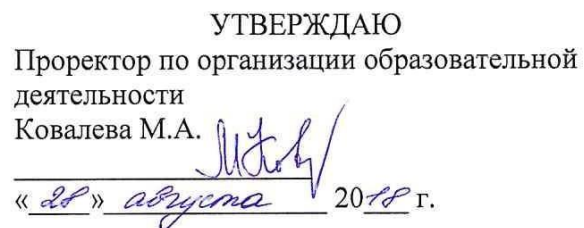 УТВЕРЖДАЮ
Проректор по организации образовательной
деятельности
Ковалева М.А.
«28» августа 2018 г.